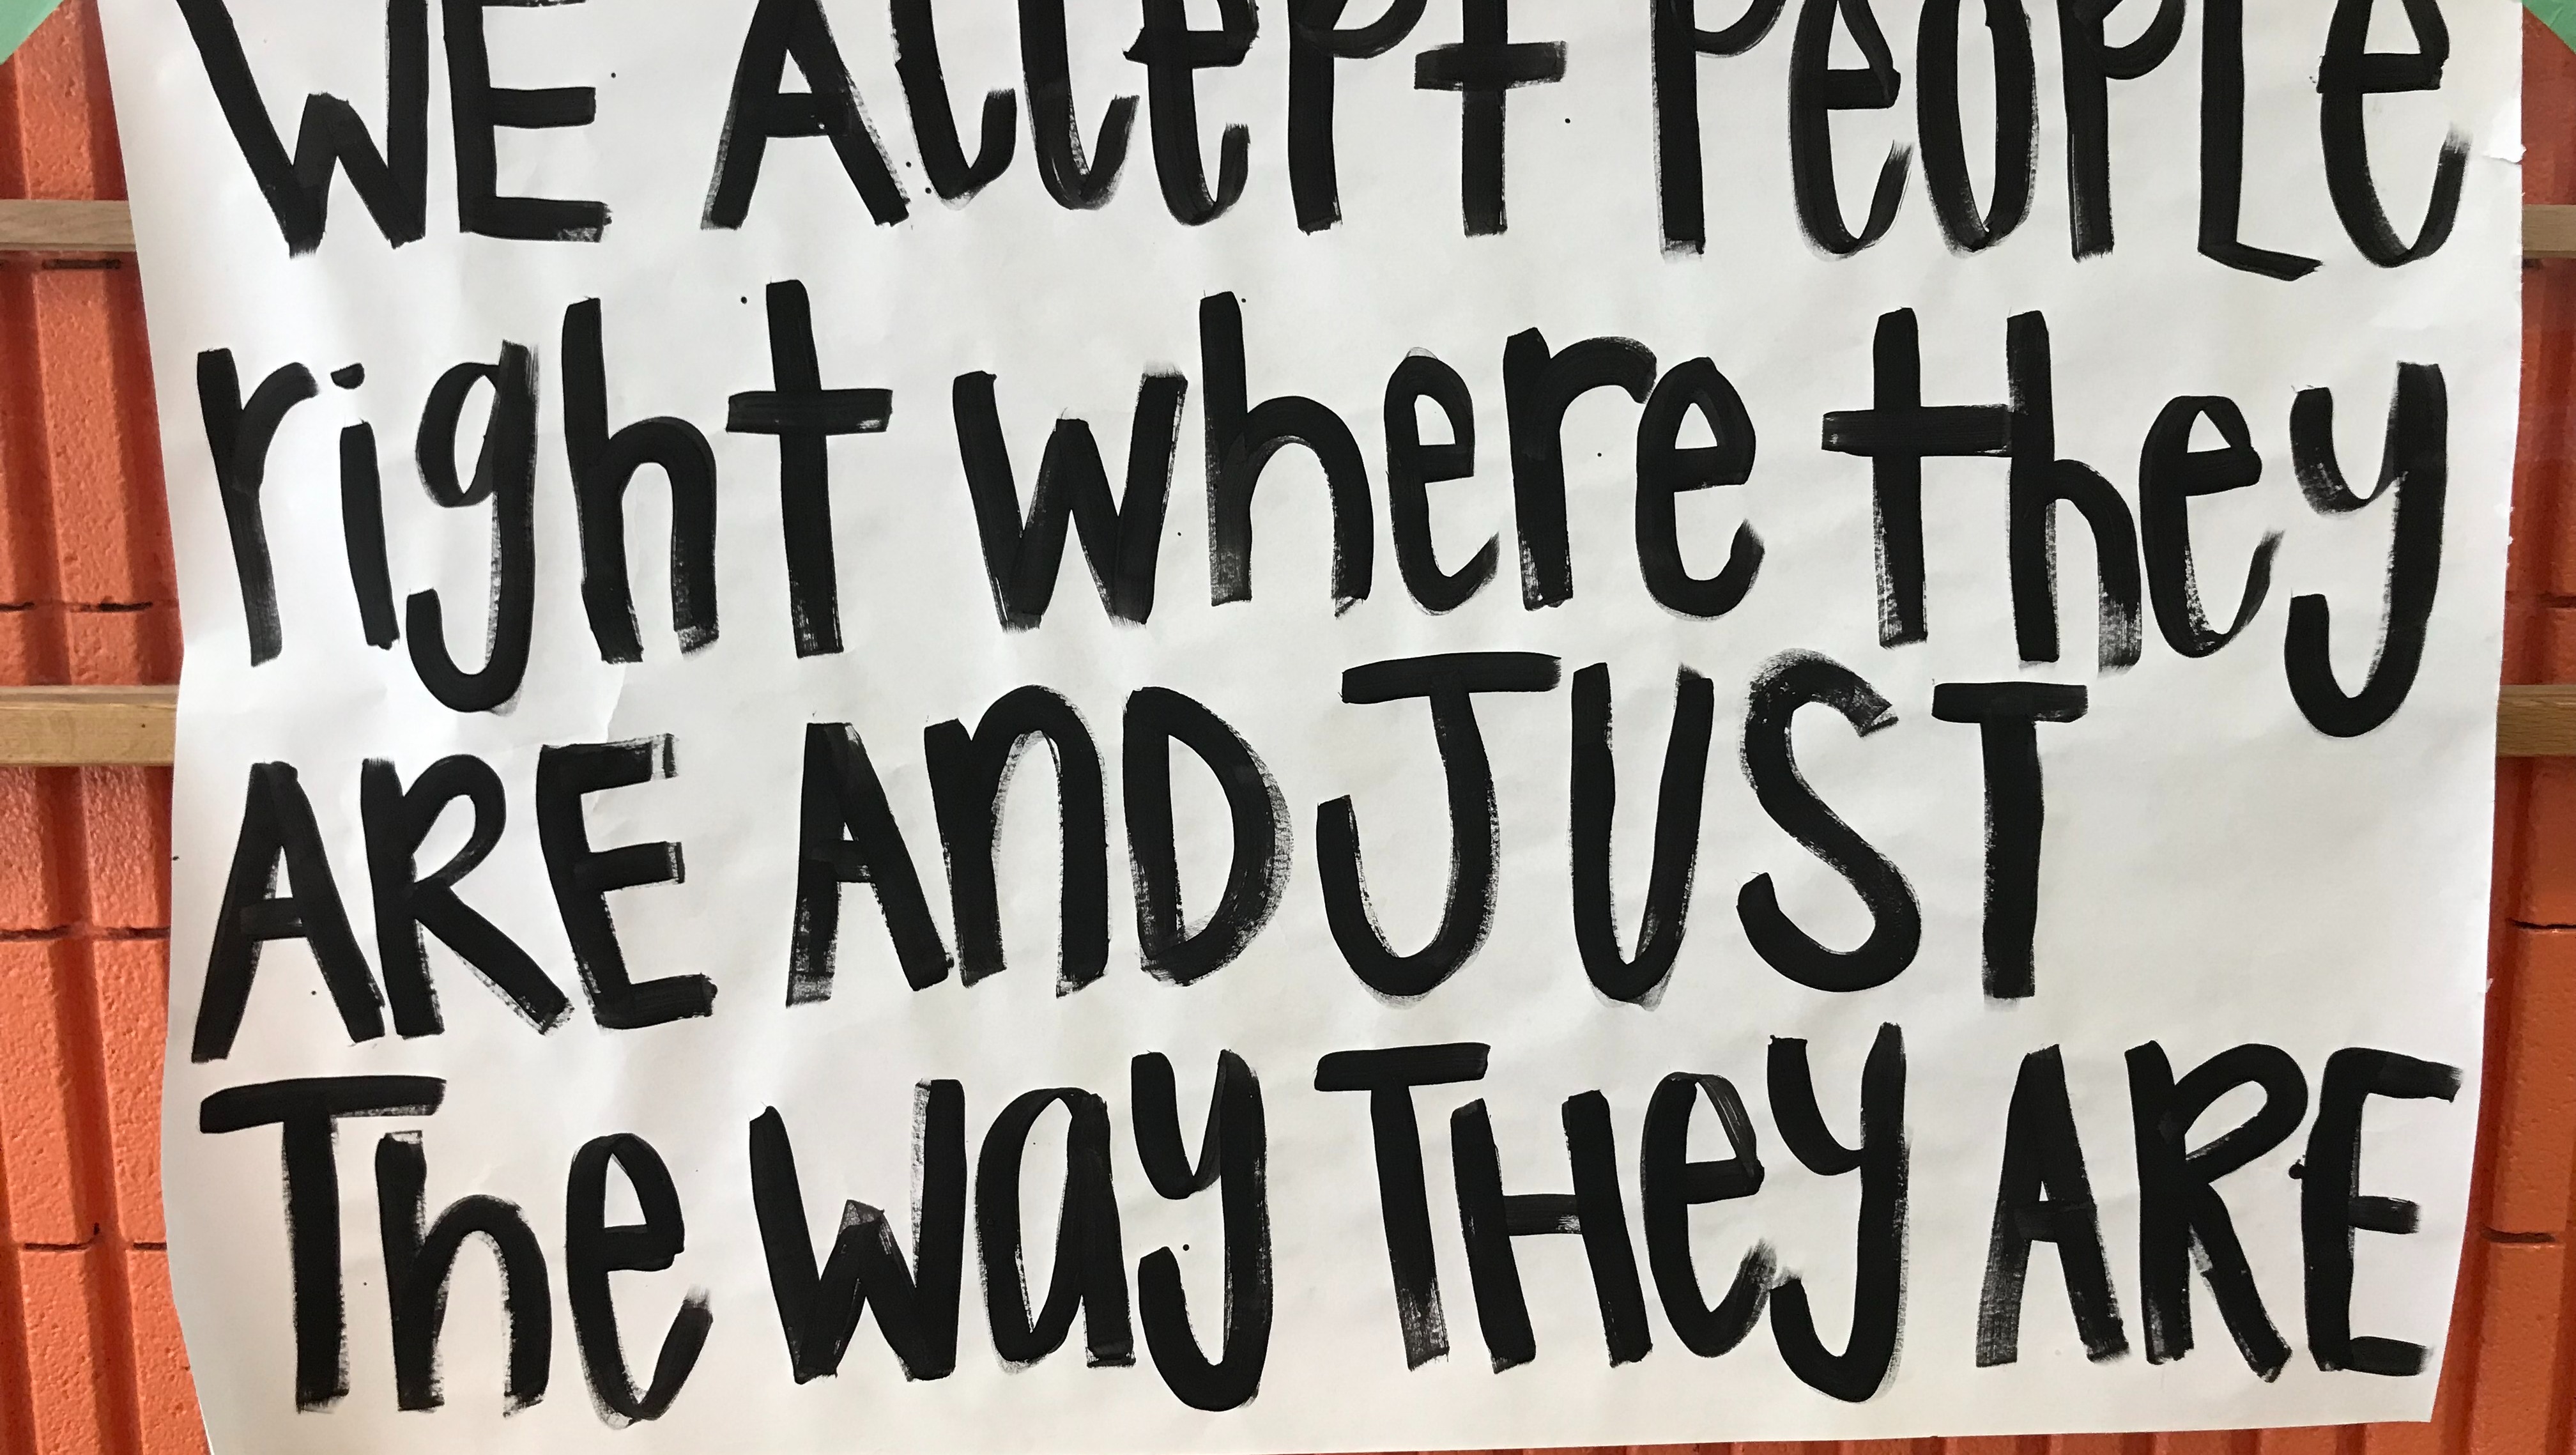 WE ACCePt PeOPLe
right where they
ARE AnD JUST
The way THey ARE